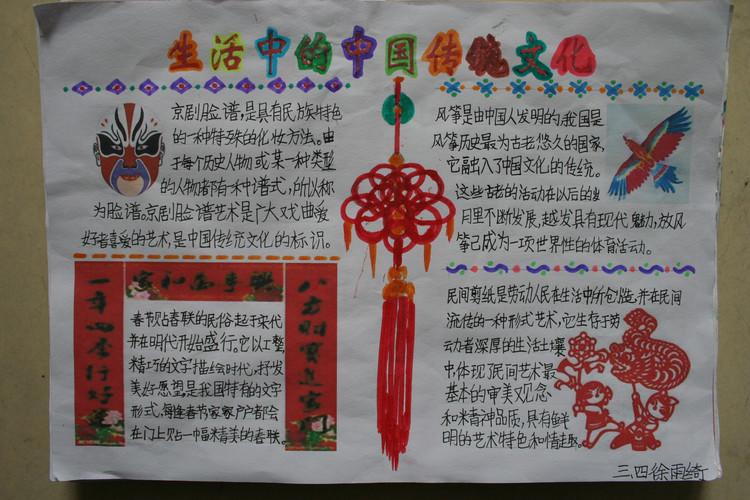 生活中的中国传统文化
京剧脸谱,是具有民族特色
的一种特殊的化妆方法。由
于每个历史人物或某一种类型
的人物都有一种谱式,所以称
为脸谱。京剧脸谱艺术是广大戏曲爱
好者喜爱的艺术,是中国传统文化的标识。
风筝是由中国人发明的,我国是
风筝历史最为古老悠久的国家,
它融入了中国文化的传统。
这些古老的活动在以后的岁
月里不断发展,越发具有现代魅力,放风
筝已成为一项世界性的体育活动。
家和万事兴
一年四季行好运
八方财宝进家门
春节贴春联的民俗起于宋代
并在明代开始盛行。它以工整,
精巧的文字描绘时代,抒发
美好愿望是我国特有的文字
形式,每逢春节家家户户都会
在门上贴一幅精美的春联。
民间剪纸是劳动人民在生活中所创造,并在民间
流传的一种形式艺术,它生存于劳
动者深厚的生活土壤
中,体现了民间艺术最
基本的审美观念
和精神品质,具有鲜
明的艺术特色和情趣。
三、四 徐雨绮